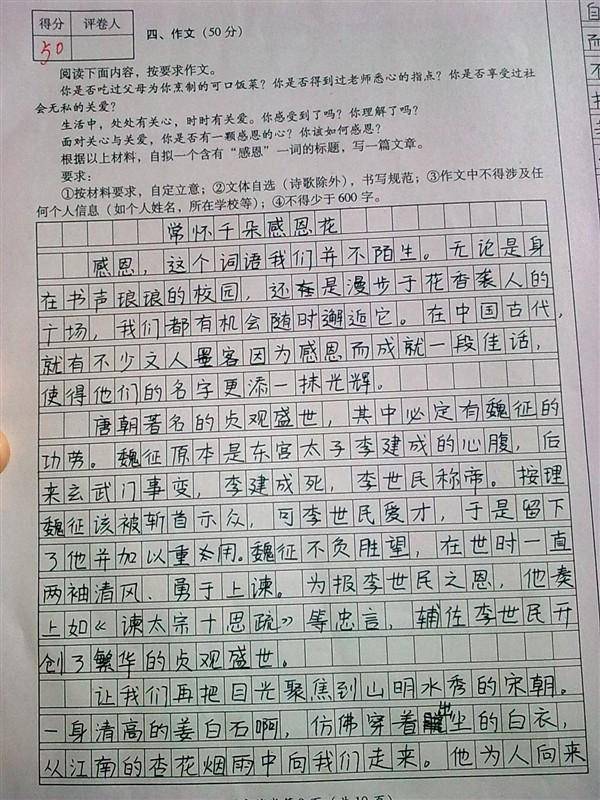 得分 评卷人
50
四、作文（50分）
阅读下面内容，按要求作文。
你是否吃过父母为你烹制的可口饭菜？你是否得到过老师悉心的指点？你是否享受过社
会无私的关爱？
生活中，处处有关心，时时有关爱。你感受到了吗？你理解了吗？
面对关心与关爱，你是否有一颗感恩的心？你该如何感恩？
根据以上材料，自拟一个含有“感恩”一词的标题，写一篇文章。
要求：
①按材料要求，自定立意；②文体自选（诗歌除外），书写规范；③作文中不得涉及任
何个人信息（如个人姓名，所在学校等）；④不得少于600字。
常怀千朵感恩花
感恩，这个词语我们并不陌生。无论是身
在书声琅琅的校园，还是漫步于花香袭人的
广场，我们都有机会随时邂逅它。在中国古代，
就有不少文人墨客因为感恩而成就一段佳话，
使得他们的名字更添一抹光辉。
唐朝著名的贞观盛世，其中必定有魏征的
功劳。魏征原本是东宫太子李建成的心腹，后
来玄武门事变，李建成死，李世民称帝。按理
魏征该被斩首示众，可李世民爱才，于是留下
了他并加以重用。魏征不负胜望，在世时一直
两袖清风、勇于上谏。为报李世民之恩，他奏
上如《谏太宗十思疏》等忠言，辅佐李世民开
创了繁华的贞观盛世。
让我们再把目光聚焦到山明水秀的宋朝。
一身清高的姜白石啊，仿佛穿着出尘的白衣，
从江南的杏花烟雨中向我们走来。他为人向来